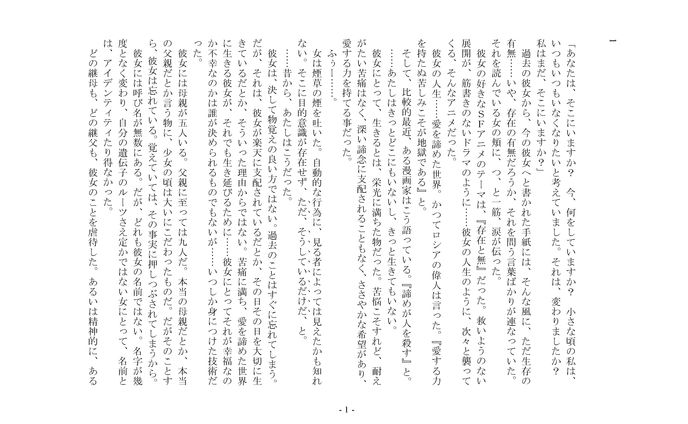 1
「あなたは、そこにいますか？　今、何をしていますか？　小さな頃の私は、
いつもいつもいなくなりたいと考えていました。それは、変わりましたか？
私はまだ、そこにいますか？」
過去の彼女から、今の彼女へと書かれた手紙には、そんな風に、ただ生存の
有無……いや、存在の有無だろうか、それを問う言葉ばかりが連なっていた。
それを読んでいる女の頬に、つ、と一筋、涙が伝った。
彼女の好きなSFアニメのテーマは、『存在と無』だった。救いようのない
展開が、筋書きのないドラマのように……彼女の人生のように、次々と襲って
くる、そんなアニメだった。
彼女の人生……愛を諦めた世界。かつてロシアの偉人は言った。『愛する力
を持たぬ苦しみこそが地獄である』と。
そして、比較的最近、ある漫画家はこう語っている。『諦めが人を殺す』と。
……あたしはきっとどこにもいないし、きっと生きてもいない。
彼女にとって、生きるとは、栄光に満ちた物だった。苦悩こそすれど、耐え
がたい苦痛はなく、深い諦念に支配されることもなく、ささやかな希望があり、
愛する力を持てる事だった。
ふぅー……。
女は煙草の煙を吐いた。自動的な行為に、見る者によっては見えたかも知れ
ない。そこに目的意識が存在せず、ただ、そうしているだけだ、と。
……昔から、あたしはこうだった。
彼女は、決して物覚えの良い方ではない。過去のことはすぐに忘れてしまう。
だが、それは、彼女が楽天に支配されているだとか、その日その日を大切に生
きているだとか、そういった理由からではない。苦痛に満ち、愛を諦めた世界
に生きる彼女が、それでも生き延びるために……彼女にとってそれが幸福なの
か不幸なのかは誰が決められるものでもないが……いつしか身につけた技術だ
った。
彼女には母親が五人いる。父親に至っては九人だ。本当の母親だとか、本当
の父親だとか言う物に、少女の頃は大いにこだわったものだ。だがそのことす
ら、彼女は忘れている。覚えていては、その事実に押しつぶされてしまうから。
彼女には呼び名が無数にある。だが、どれも彼女の名前ではない。名字が幾
度となく変わり、自分の遺伝子のルーツさえ定かではない女にとって、名前と
は、アイデンティティたり得なかった。
どの継母も、どの継父も、彼女のことを虐待した。あるいは精神的に、ある
- 1 -